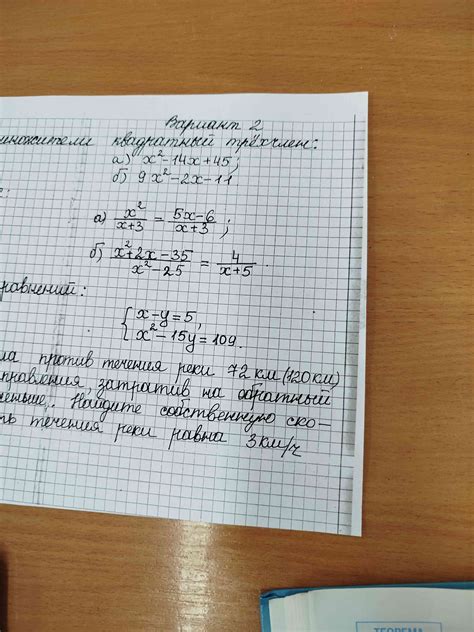 Вариант 2
множители квадратный трёхчлен:
а) x²-14x+45;
б) 9x²-2x-11.
е:
а) x²/(x+3) = (5x-6)/(x+3);
б) (x²+2x-35)/(x²-25) = 4/(x+5).
равнений:
{x-y=5,
x²-15y=109.
ла против течения реки 72 км (120 км)
правления, затратив на обратный
меньше. Найдите собственную ско-
ть течения реки равна 3 км/ч
ТЕОРЕМА